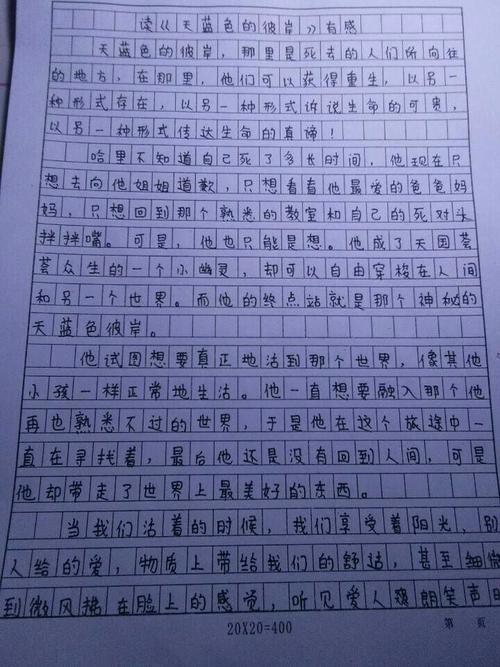 读《《天蓝色的彼岸》》有感
天蓝色的彼岸，那里是死去的人们所向往
的地方，在那里，他们可以获得重生，以另一
种形式存在，以另一种形式诉说生命的可贵，
以另一种形式传达生命的真谛！
哈里不知道自己死了多长时间，他现在只
想去向他姐姐道歉，只想看看他最爱的爸爸妈
妈，只想回到那个熟悉的教室和自己的死对头
拌拌嘴。可是，他也只能是想。他成了天国芸
芸众生的一个小幽灵，却可以自由穿梭在人间
和另一个世界。而他的终点站就是那个神秘的
天蓝色彼岸。
他试图想要真正地活到那个世界，像其他
小孩一样正常地生活。他一直想要融入那个他
再也熟悉不过的世界，于是他在这个旅途中一
直在寻找着，最后他还是没有回到人间，可是
他却带走了世界上最美好的东西。
当我们活着的时候，我们享受着阳光，别
人给的爱，物质上带给我们的舒适，甚至细微
到微风拂在脸上的感觉，听见爱人爽朗笑声时
20X20=400
第 页